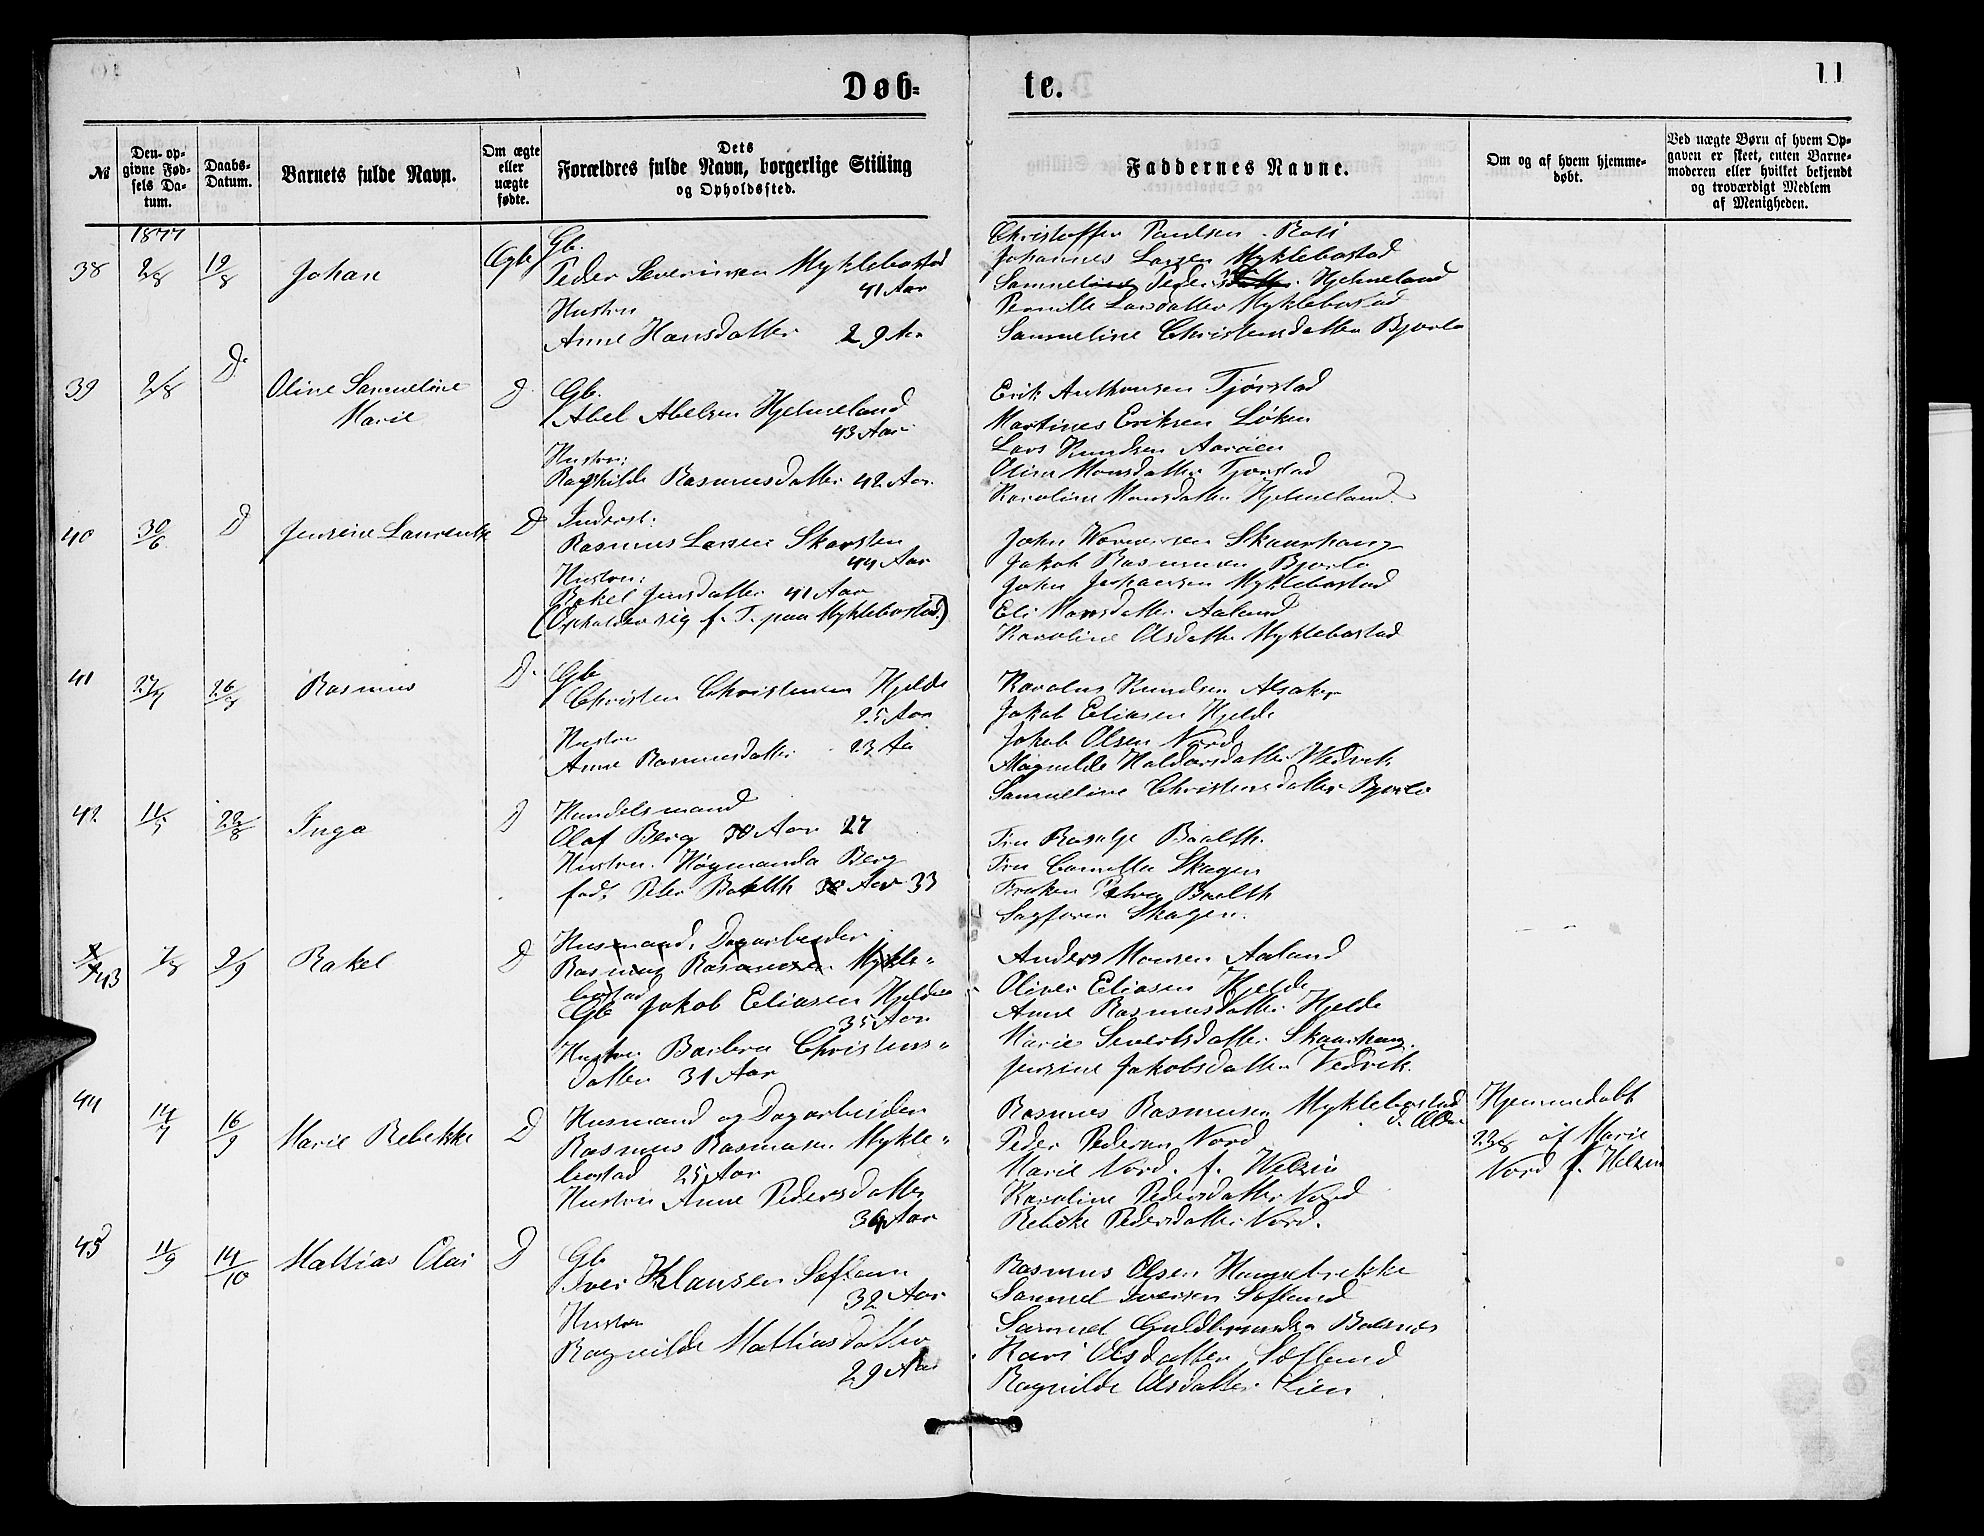 Døb-
te.
11
№
Den opgivne Fødsels Datum.
Daabs-Datum.
Barnets fulde Navn.
Om ægte eller uægte fødte.
Dets Forældres fulde Navn, borgerlige Stilling og Opholdssted.
Faddernes Navne.
Om og af hvem hjemmedøbt.
Ved uægte Børn af hvem Opgaven er skeet, enten Barnemoderen eller hvilket betjendt og troværdigt Medlem af Menigheden.
1877
38 2/8 19/8 Johan Ægte
Gb.
Peder Severinsen Myklebostad
41 Aar
Hustru
Anne Hansdatter 29 Aar
Christoffer Paulsen
Johannes Larsen Myklebostad
Hjelmeland
Pernille Larsdatter Myklebostad
Samueline Christensdatter Bjorlo
39 2/8 D. Oline Samueline
Marie
D.
Gb.
Abel Abelsen Hjelmeland
43 Aar
Hustru:
Ragnhilde Rasmusdatter 42 Aar
Erik Anthonsen Tjønstad
Martines Eriksen Løken
Lars Knudsen Aarøen
Oline Monsdatter Tjønstad
Karoline Monsdatter Hjelmeland.
40 30/6 D Jensine Laurentse D
Inderst:
Rasmus Larsen Skarsten
44 Aar
Hustru:
Rakel Jensdatter 41 Aar
(Opholder sig f. T. paa Myklebostad)
John Skaarhaug
Jakob Rasmusen Bjorlo
John Johansen Myklebostad
Eli Monsdatter Aaland
Karoline Olsdatter Myklebostad
41 27/7 26/8 Rasmus D.
Gb
Christen Christensen Hjelde
25 Aar
Hustru
Anne Rasmusdatter 23 Aa
Karolus Knudsen Alsaker
Jakob Eliasen Hjelde
Jakob Olsen Nord
Magnilde Haldorsdatter Wedvik
Samueline Christensdatter Bjorlo
42 11/5 22/8 Inga D
Handelsmand
Olaf Berg 30 Aar 27
Hustru. Høgmanda Berg
30 Aar 33
Fru Baalth.
Fru Camilla Skagen
Frøken Petra Baalth
Sagfører Skagen.
43 7/8 2/9 Rakel D
Husmand, Dagarbeider
Rasmus Rasmusen Mykle-
bostad
Gb Jakob Eliasen Hjelde
35 Aar
Hustru Barbra Christens-
datter 31 Aar
Anders Monsen Aaland
Oliver Eliasen Hjelde
Anne Rasmusdatter Hjelde
Marie Sivertsdatter Skaarhaug.
Jensine Jakobsdatter Vedvik.
44 14/7 16/9 Marie Rebekke D
Husmand og Dagarbeider
Rasmus Rasmusen Mykle-
bostad 25 Aar
Hustru Anne Pedersdatter
36 Aar
Rasmus Rasmusen Myklebostad
d. Ældre
Peder Pedersen Nord
Marie Nord. f. Welzin
Karoline Pedersdatter Nord
Rebekke Pedersdatter Nord.
Hjemmedøbt
22/8 af Marie
Nord f. Welzin
45 11/9 14/10 Mathias Olai D
Gb
Iver Klausen Sofland
32 Aar
Hustru
Ragnilde Mathiasdatter
29 Aar
Rasmus Olsen Hammebrekke
Samuel Iversen Sofland
Samuel Guldbrandsen Balsnes
Kari Olsdatter Sofland
Ragnilde Olsdatter Lien